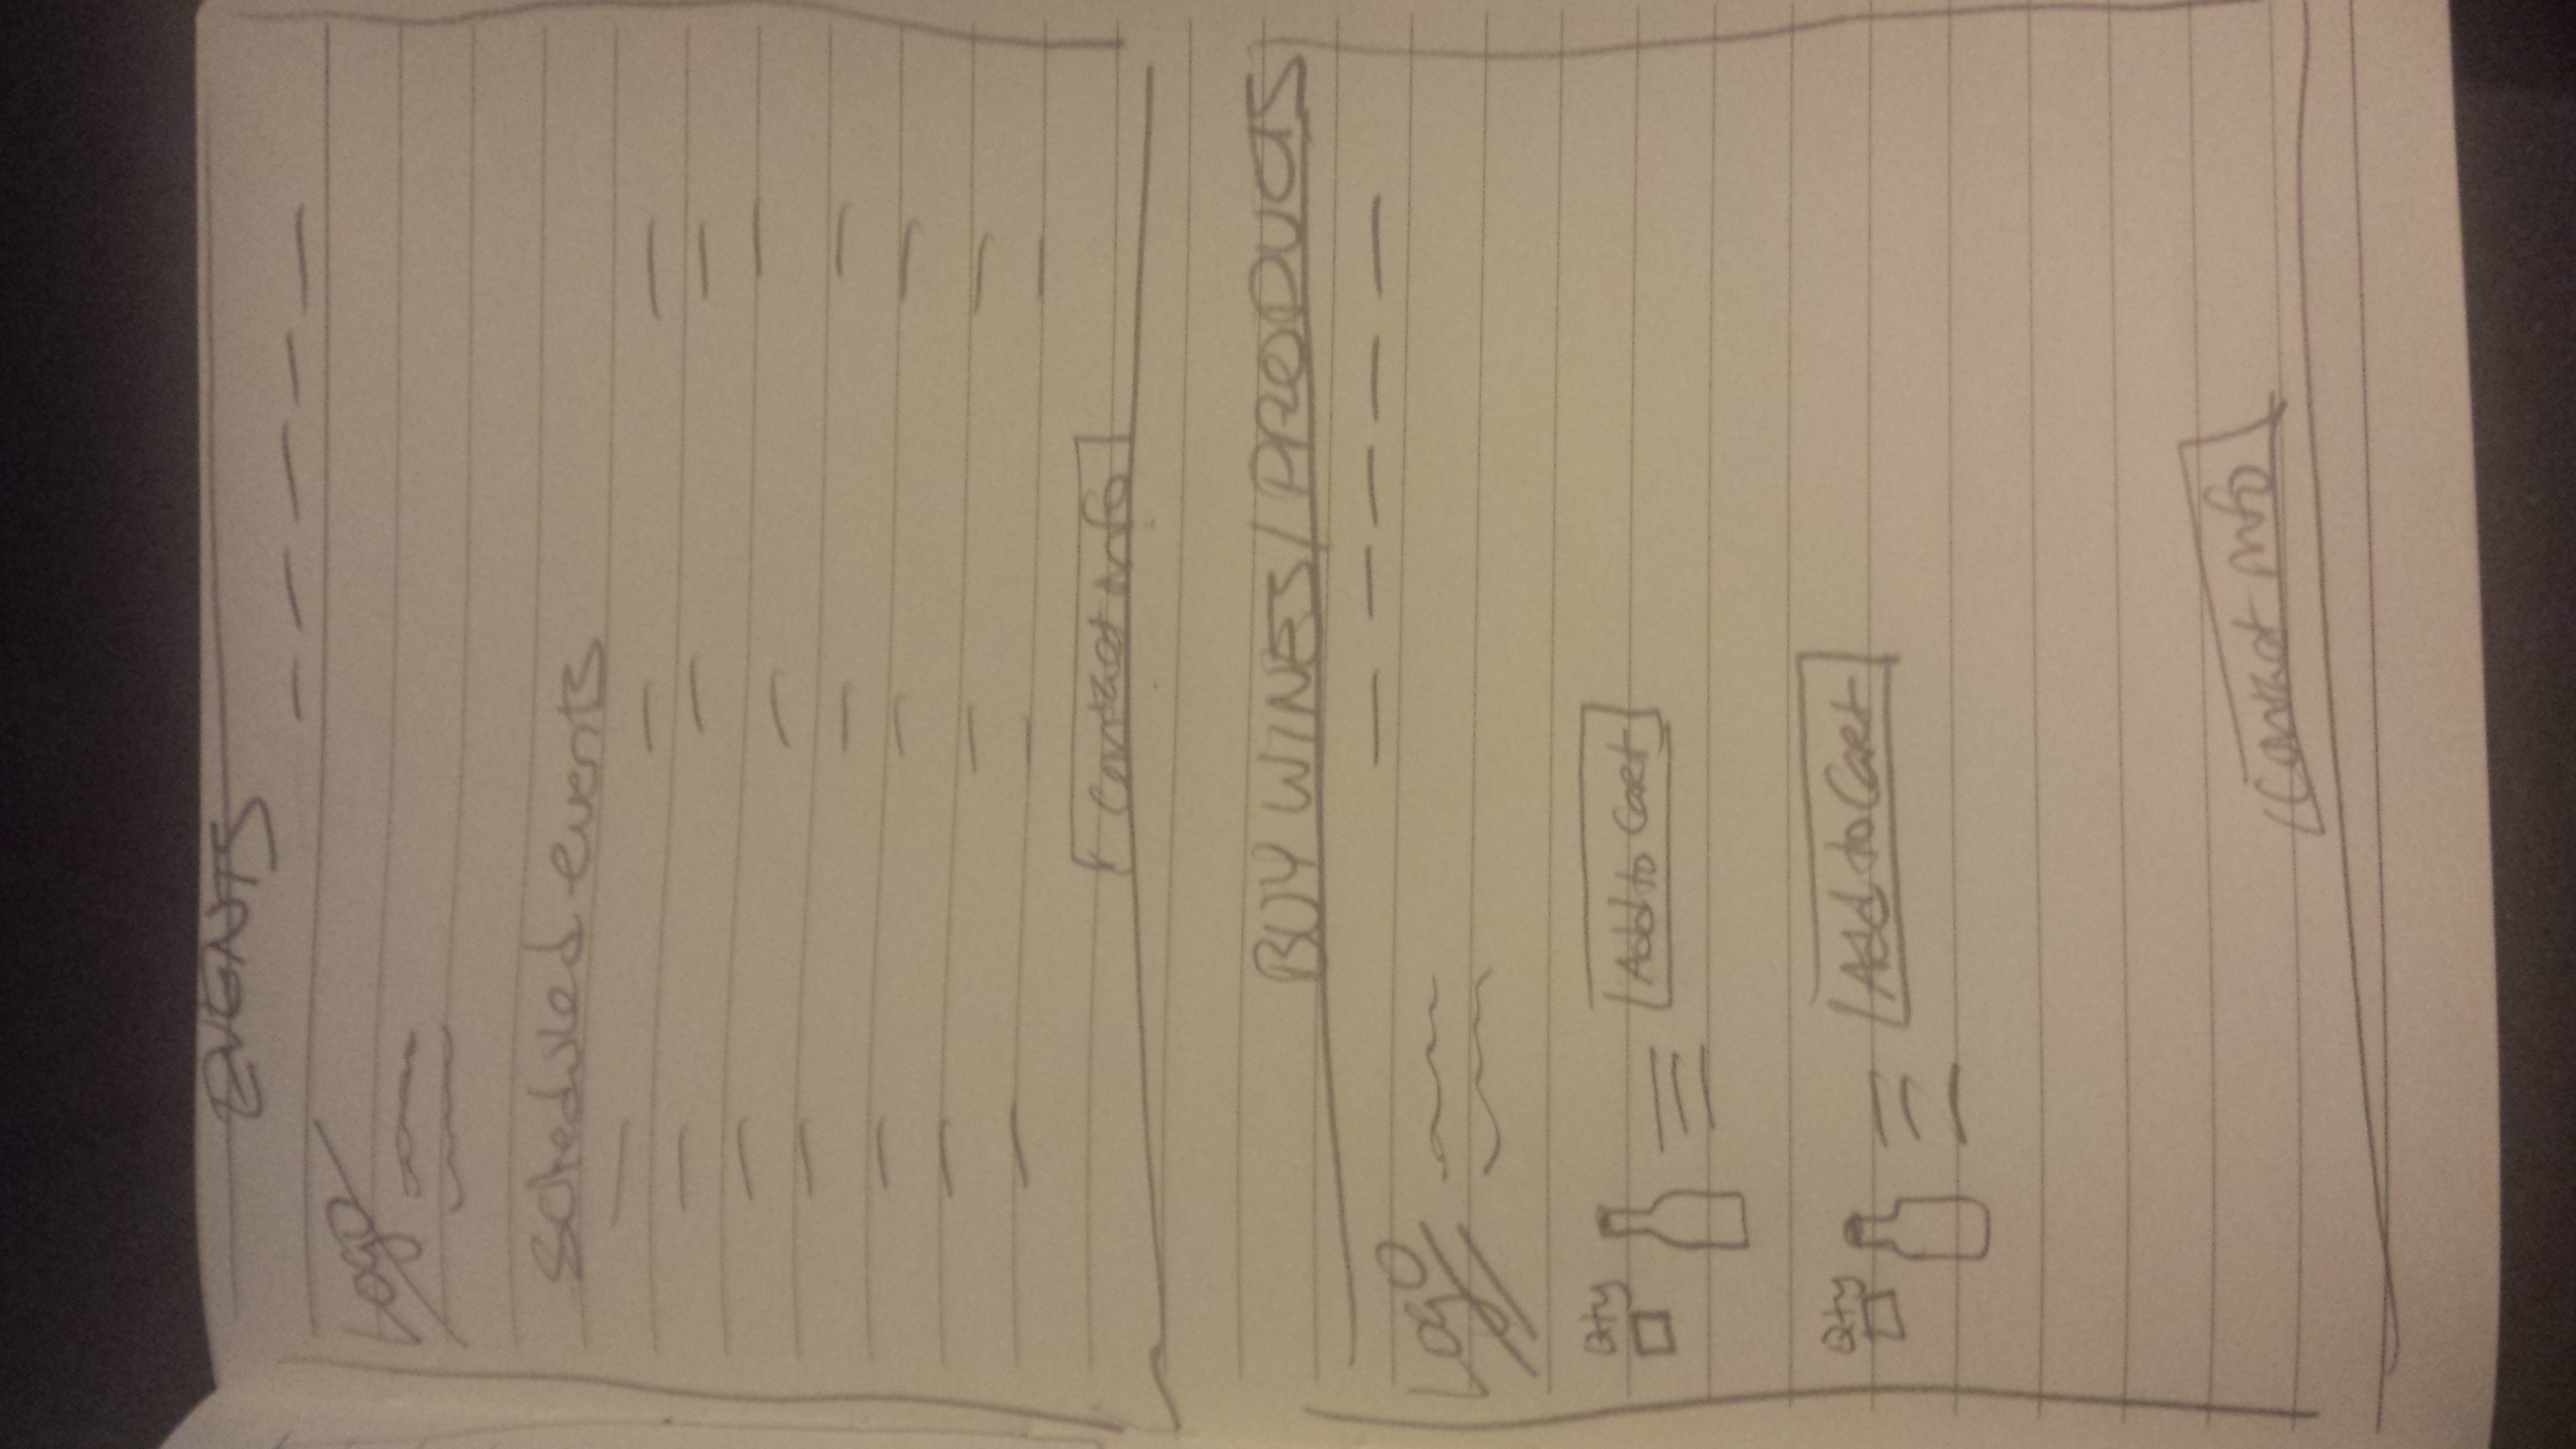 EVENTS
Logo
Scheduled events
Contact info
BUY WINES/PRODUCTS
Logo
Qty
Add to Cart
Qty
Add to Cart
Contact info